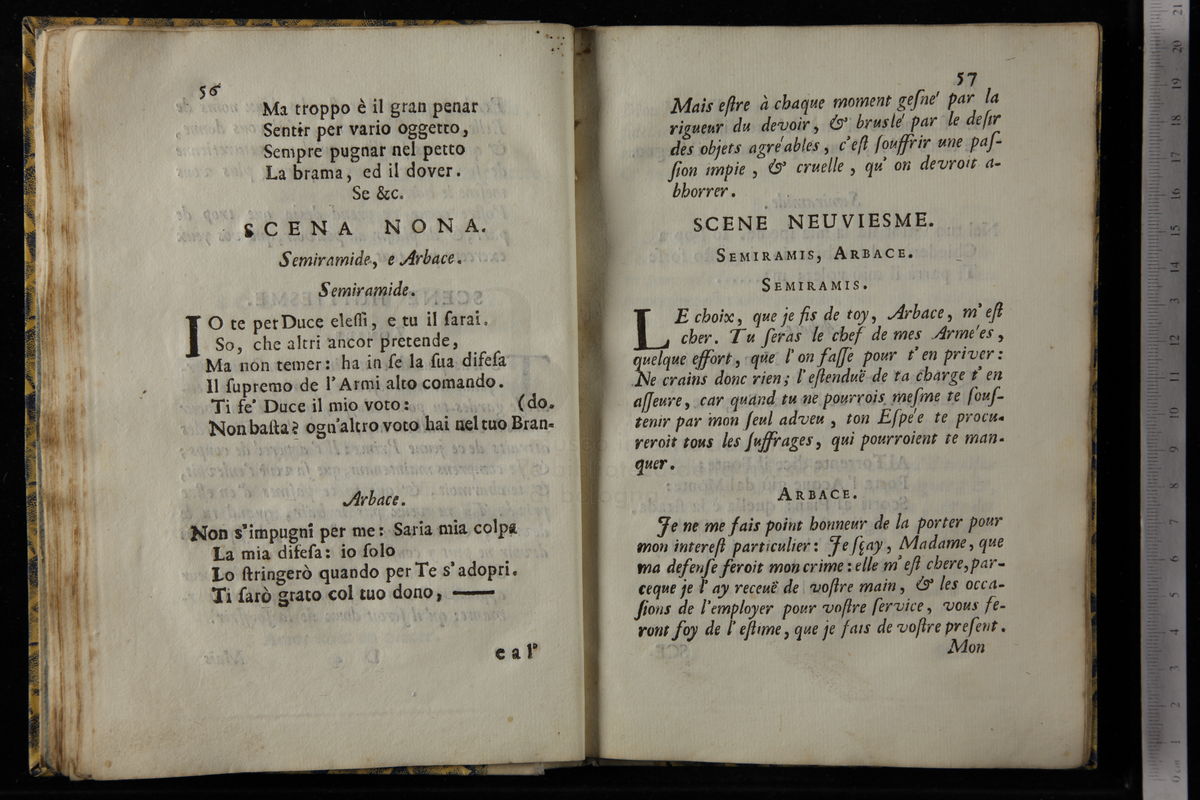 56
Ma troppo è il gran penar
Sentir per vario oggetto,
Sempre pugnar nel petto
La brama, ed il dover.
Se &c.
SCENA NONA.
Semiramide, e Arbace.
Semiramide.
IO te per Duce eleſſi, e tu il ſarai.
So, che altri ancor pretende,
Ma non temer: ha in ſe la ſua difeſa
Il ſupremo de l'Armi alto comando.
Ti fe' Duce il mio voto: (do.
Non baſta? ogn'altro voto hai nel tuo Bran-
Arbace.
Non s'impugni per me: Saria mia colpa
La mia difeſa: io ſolo
Lo ſtringerò quando per Te s'adopri.
Ti ſarò grato col tuo dono, ——
e al'
57
Mais eſtre à chaque moment geſne' par la
rigueur du devoir, & brusle' par le deſir
des objets agre'ables, c'eſt ſouffrir une paſ-
ſion impie, & cruelle, qu' on devroit a-
bhorrer.
SCENE NEUVIESME.
SEMIRAMIS, ARBACE.
SEMIRAMIS.
LE choix, que je fis de toy, Arbace, m'eſt
cher. Tu ſeras le chef de mes Arme'es,
quelque effort, que l'on faſſe pour t'en priver:
Ne crains donc rien; l'eſtenduë de ta charge t'en
aſſeure, car quand tu ne pourrois meſme te ſouſ-
tenir par mon ſeul adveu, ton Eſpe'e te procu-
reroit tous les ſuffrages, qui pourroient te man-
quer.
ARBACE.
Je ne me fais point honneur de la porter pour
mon intereſt particulier: Je ſçay, Madame, que
ma defenſe feroit mon crime: elle m'eſt chere, par-
ceque je l'ay receuë de voſtre main, & les occa-
ſions de l'employer pour voſtre ſervice, vous fe-
ront foy de l'eſtime, que je fais de voſtre preſent.
Mon